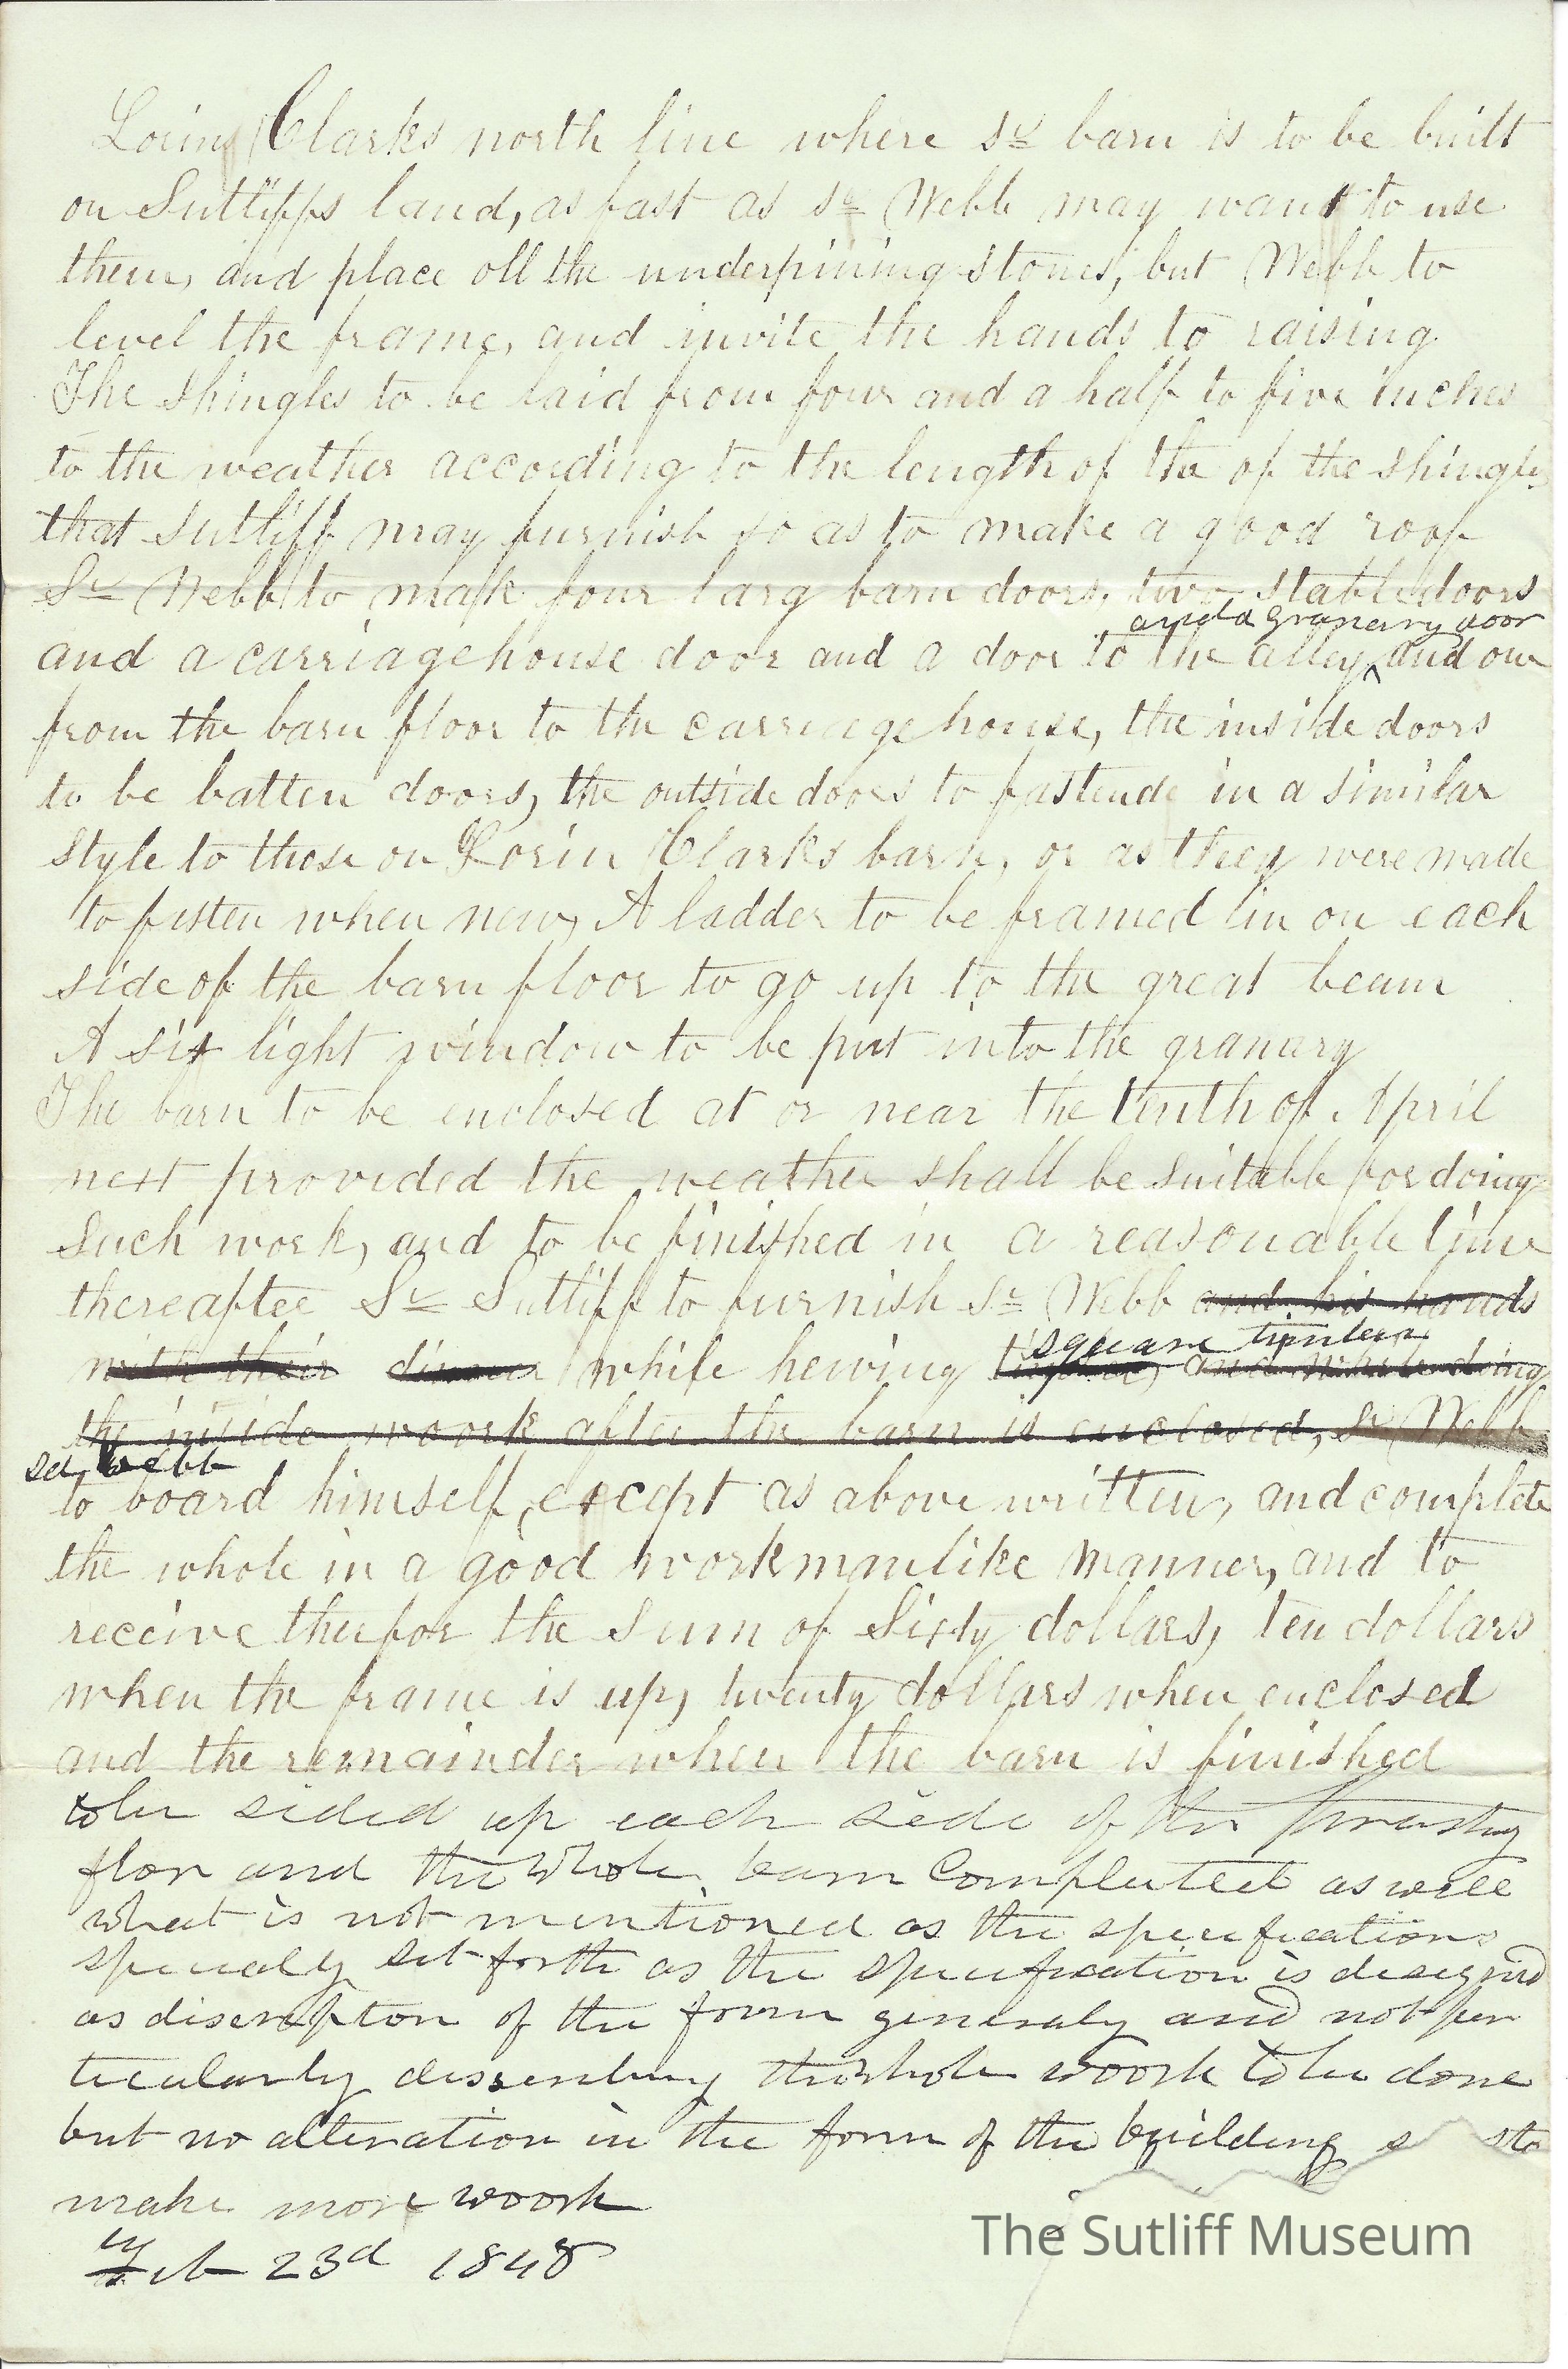 Loring Clarks north line where Sd barn is to be built
on Sutliffs land, as fast as Sd Webb may want to use
them, and place all the underpining stones, but Webb to
level the frame, and invite the hands to raising
The shingles to be laid from four and a half to five inches
to the weather according to the length of the of the shingles
that Sutliff may furnish so as to make a good roof
Sd Webb to make four larg barn doors, two stable doors
and a granary door
and a carriagehouse door and a door to the alley and one
from the barn floor to the carriage house, the inside doors
to be batten doors, the outside doors to fastende in a similar
style to those on Lorin Clarks barn, or as they were made
to fasten when new, A ladder to be framed in on each
side of the barn floor to go up to the great beam
A six light window to be put into the granary
The barn to be enclosed at or near the tenth of April
next provided the weather shall be suitable for doing
Such work, and to be finished in a reasonable time
thereafter Sd Sutliff to furnish Sd Webb and his hands
square timber
with their dinner while hewing timber, and while doing
the inside work after the barn is enclosed, Sd Webb
sd Webb
to board himself, except as above written, and complete
the whole in a good workmanlike manner, and to
receive therfor the Sum of Sixty dollars, ten dollars
when the frame is up, twenty dollars when enclosed
and the remainder when the barn is finished
to be sided up each side of the
flor and the whole barn Compleated as well
what is not mentioned as the specifications
specialy set forth as the specification is designd
as discription of the form generaly and not per
ticularly describing the whole woork to be done
but no alteration in the form of the building to
make more woork
Feb 23d 1848
The Sutliff Museum